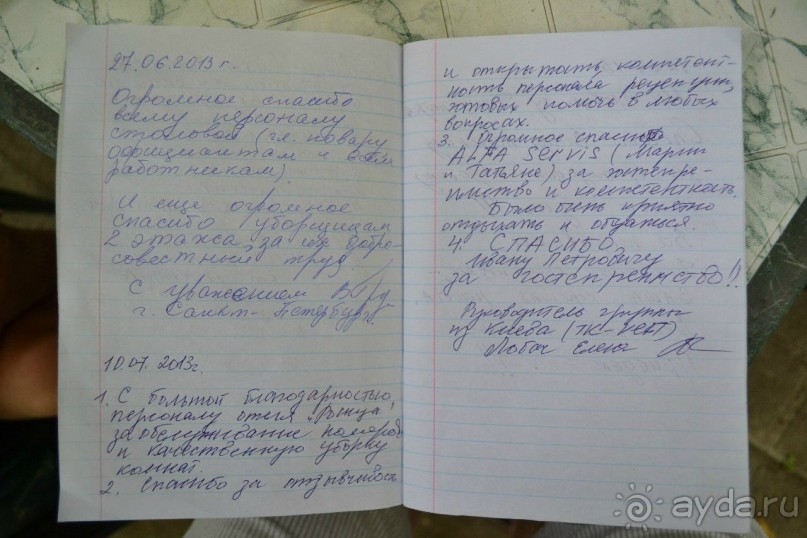 27.06.2013 г.
Огромное спасибо
всему персоналу
столовой (гл. повару
официантам и всем
работникам)
И еще огромное
спасибо уборщицам
2 этажа за их добро-
совестный труд.
С уважением
г. Санкт-Петербург.
10.07.2013г.
1. С большой благодарностью
персоналу отеля
за обслуживание номеров
и качественную уборку
комнат.
2. Спасибо за отзывчивость
и открытость, компетент-
ность персонала рецепции,
готовых помочь в любых
вопросах.
3. Огромное спасибо
ALFA Servis (Марии
и Татьяне) за
и компетентность.
Было очень приятно
отдыхать и общаться.
4. СПАСИБО
Ивану Петровичу
за гостеприимство!!
Руководитель группы
из Киева
Елена
ayda.ru